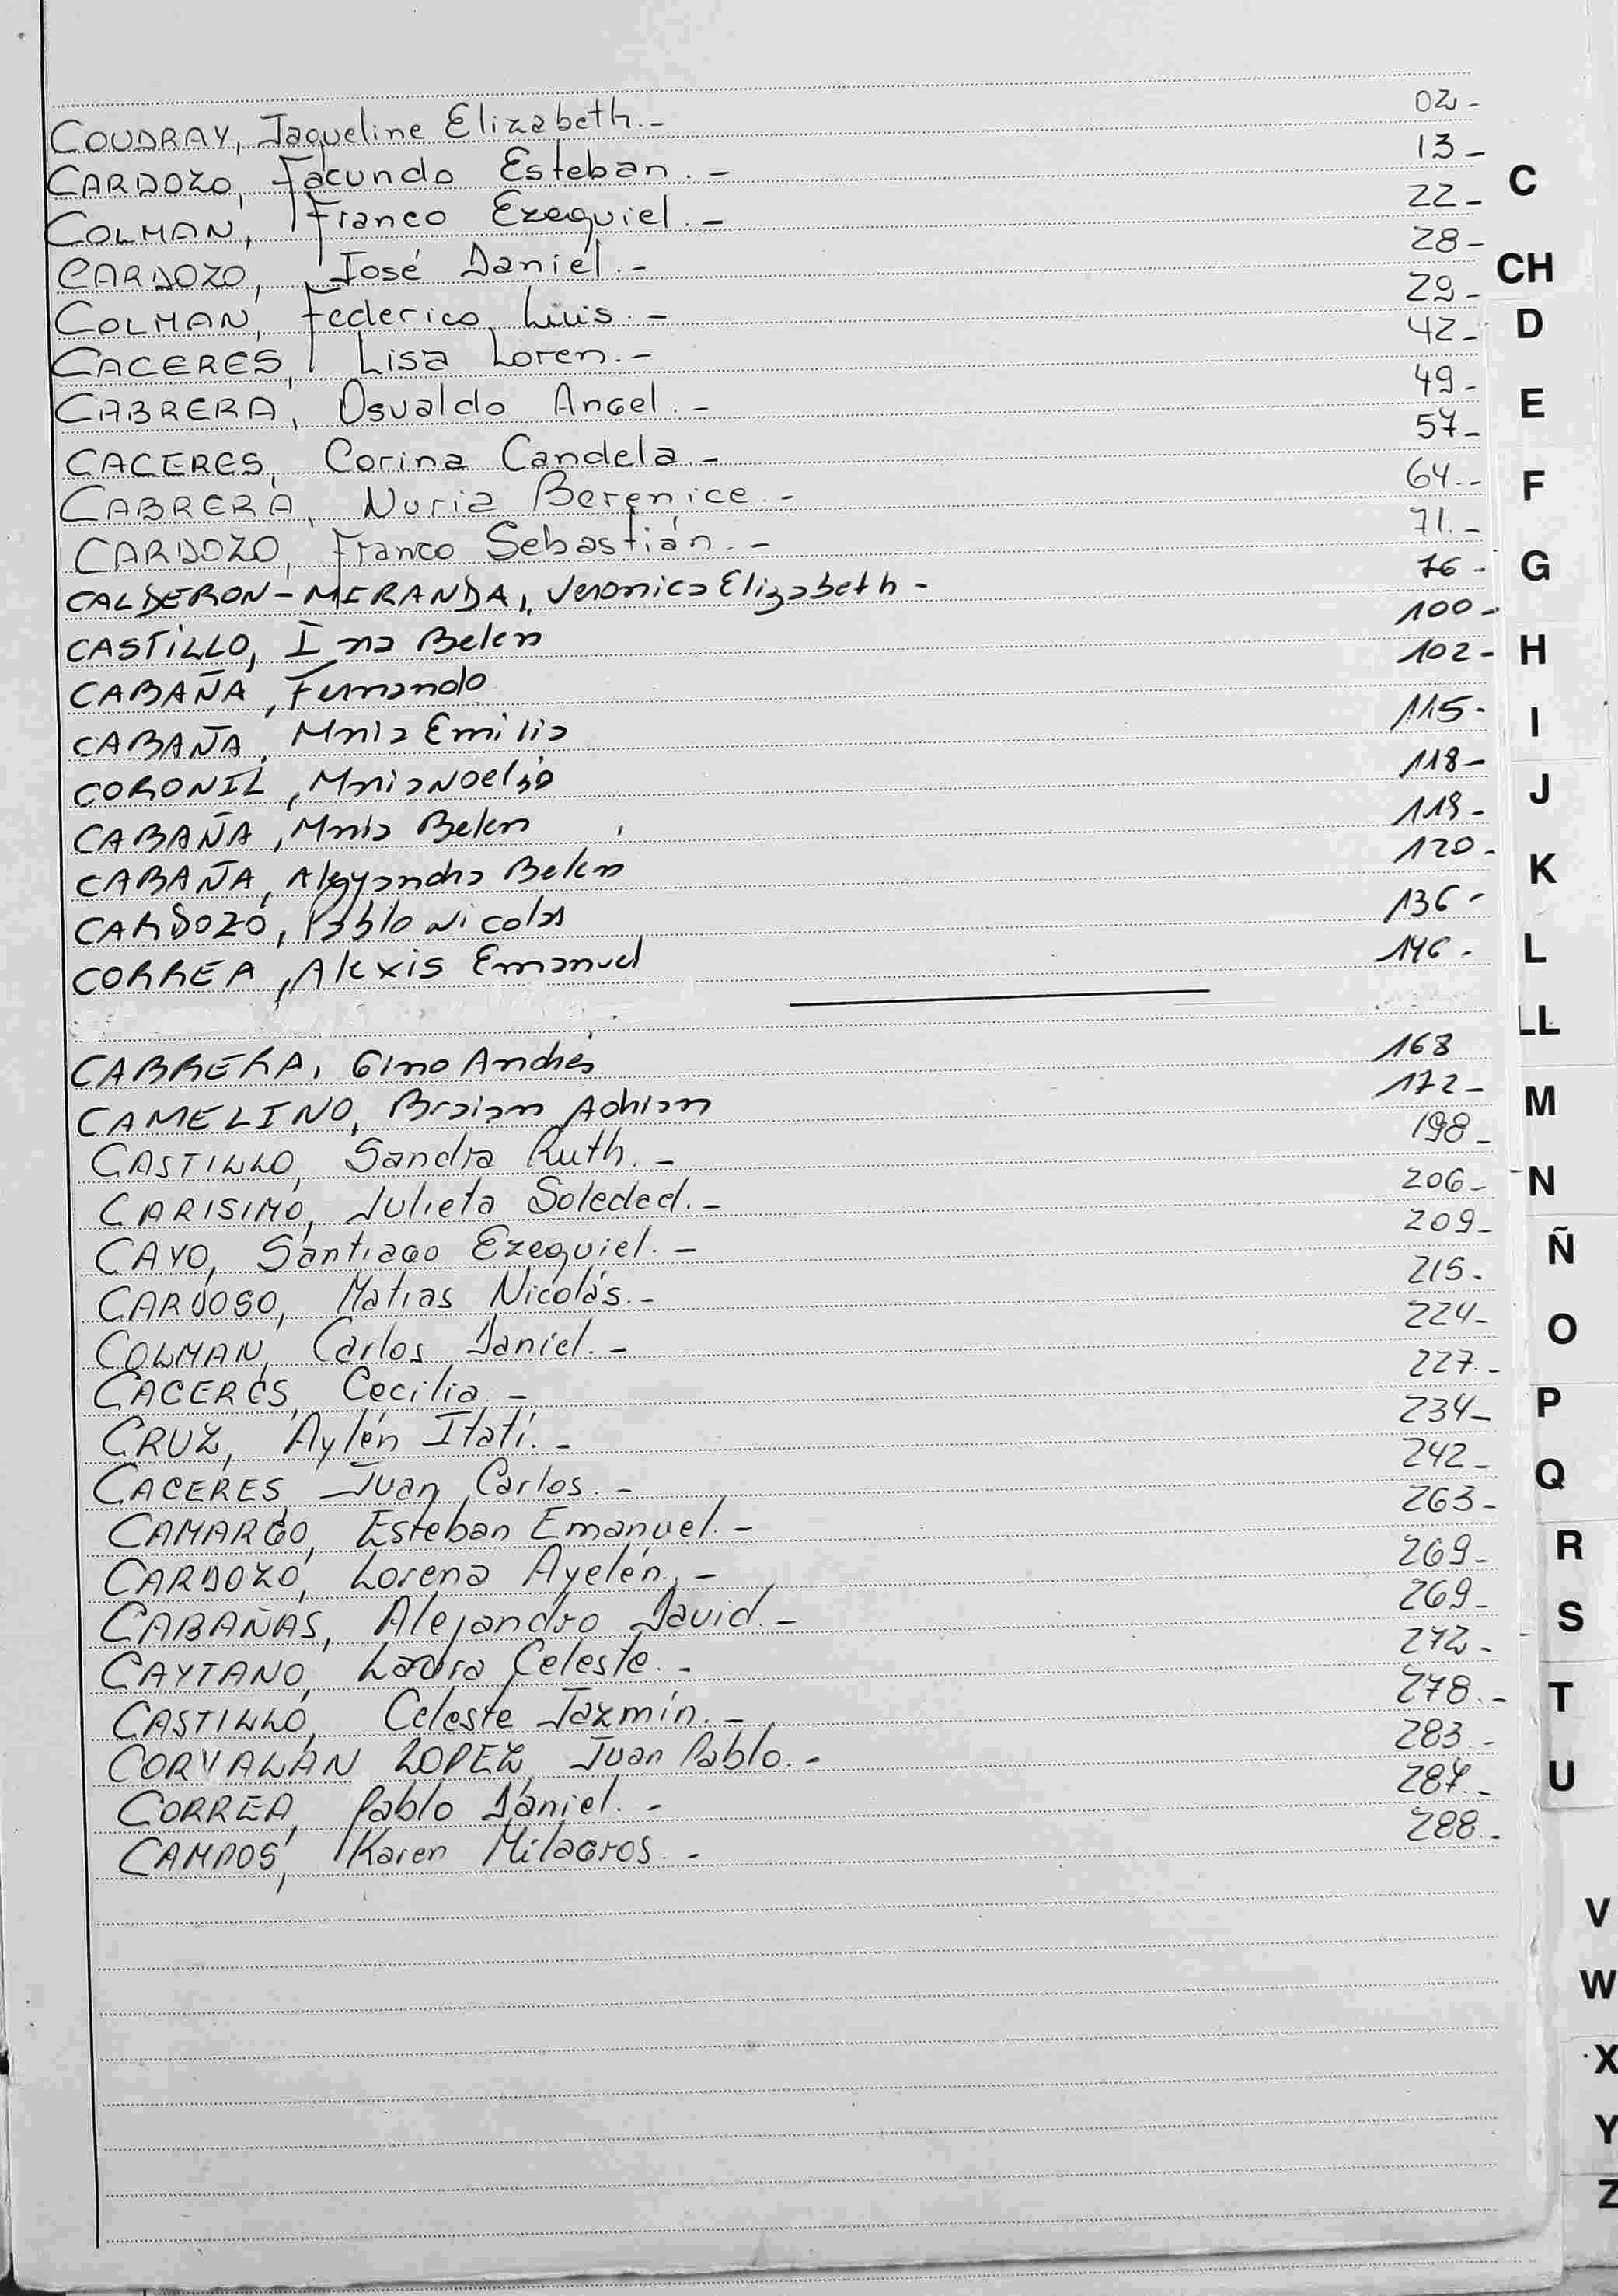 COUDRAY, Jaqueline Elizabeth.- 02-
CARDOZO, Facundo Esteban.- 13-
COLMAN, Franco Ezequiel.- 22-
CARDOZO, José Daniel.- 28-
COLMAN, Federico Luis.- 29-
CACERES, Lisa Loren.- 42-
CABRERA, Osvaldo Angel.- 49-
CACERES, Corina Candela.- 57-
CABRERA, Nuria Berenice.- 64.-
CARDOZO, Franco Sebastián.- 71.-
CALDERON-MIRANDA, Veronica Elizabeth- 76-
CASTILLO, Ina Belen 100-
CABAÑA, Fernando 102-
CABAÑA, Maria Emilia 115-
CORONIL, Maria Noelia 118-
CABAÑA, Maria Belen 119-
CABAÑA, Alejandra Belen 120-
CARDOZO, Pablo Nicolas 136-
CORREA, Alexis Emanuel 146-
CABRERA, Gino Andrés 168
CAMELINO, Braian Adrian 172-
CASTILLO, Sandra Ruth.- 198-
CARISIMO, Julieta Soledad.- 206-
CAYO, Santiago Ezequiel.- 209-
CARDOSO, Matias Nicolás.- 215-
COLMAN, Carlos Daniel.- 224-
CACERES, Cecilia.- 227.-
CRUZ, Aylén Itatí.- 234-
CACERES, Juan Carlos.- 242-
CAMARGO, Esteban Emanuel.- 263-
CARDOZO, Lorena Ayelén.- 269-
CABAÑAS, Alejandro David.- 269-
CAYTANO, Laura Celeste.- 272-
CASTILLO, Celeste Jazmín.- 278.-
CORVALÁN LOPEZ, Juan Pablo.- 283.-
CORREA, Pablo Daniel.- 287.-
CAMPOS, Karen Milagros.- 288.-
C
CH
D
E
F
G
H
I
J
K
L
LL
M
N
Ñ
O
P
Q
R
S
T
U
V
W
X
Y
Z